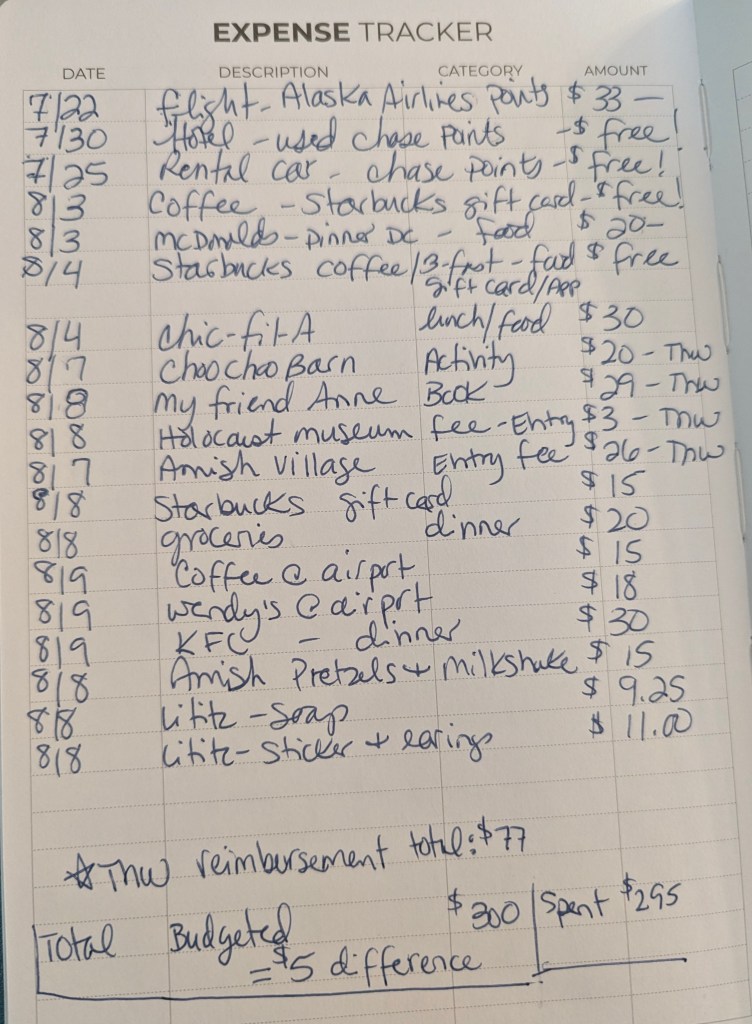 EXPENSE TRACKER
DATE DESCRIPTION CATEGORY AMOUNT
7/22 flight - Alaska Airlines points $ 33 —
7/30 Hotel - used chase points -$ free!
7/25 Rental car - chase points -$ free!
8/3 Coffee - Starbucks gift card -$ free!
8/3 McDonalds - Dinner DC - food $ 20 —
8/4 Starbucks coffee/B-fast - food $ free
gift card/App
8/4 Chic-fil-A lunch/food $ 30
8/7 Choo Choo Barn Activity $ 20 - Thw
8/8 My friend Anne Book $ 29 - Thw
8/8 Holocaust museum fee - Entry $ 3 - Thw
8/7 Amish Village Entry fee $ 26 - Thw
8/8 Starbucks gift card $ 15
8/8 groceries dinner $ 20
8/9 Coffee @ airport $ 15
8/9 Wendy's @ airport $ 18
8/9 KFC - dinner $ 30
8/8 Amish Pretzels + Milkshake $ 15
8/8 Lititz - Soap $ 9.25
8/8 Lititz - Sticker + earings $ 11.00
☆ Thw reimbursement total: $77
Total Budgeted $ 300 | Spent $295
= $5 difference